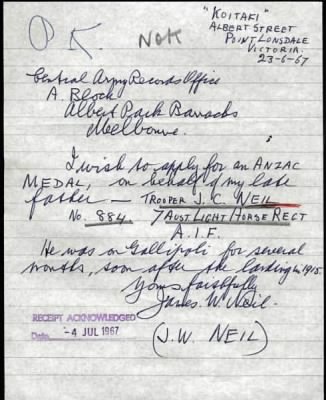 O.K.
NOK
"KOITAKI"
ALBERT STREET
POINT LONSDALE
VICTORIA.
23-6-67
Central Army Records Office
A Block
Albert Park Barracks
Melbourne.
I wish to apply for an ANZAC
MEDAL, on behalf of my late
father — TROOPER J. C. NEIL
No. 884 7 AUST LIGHT HORSE REGT
A.I.F.
He was on Gallipoli for several
months, soon after the landing in 1915.
Yours faithfully
James W. Neil.
(J.W. NEIL)
RECEIPT ACKNOWLEDGED
Date -4 JUL 1967